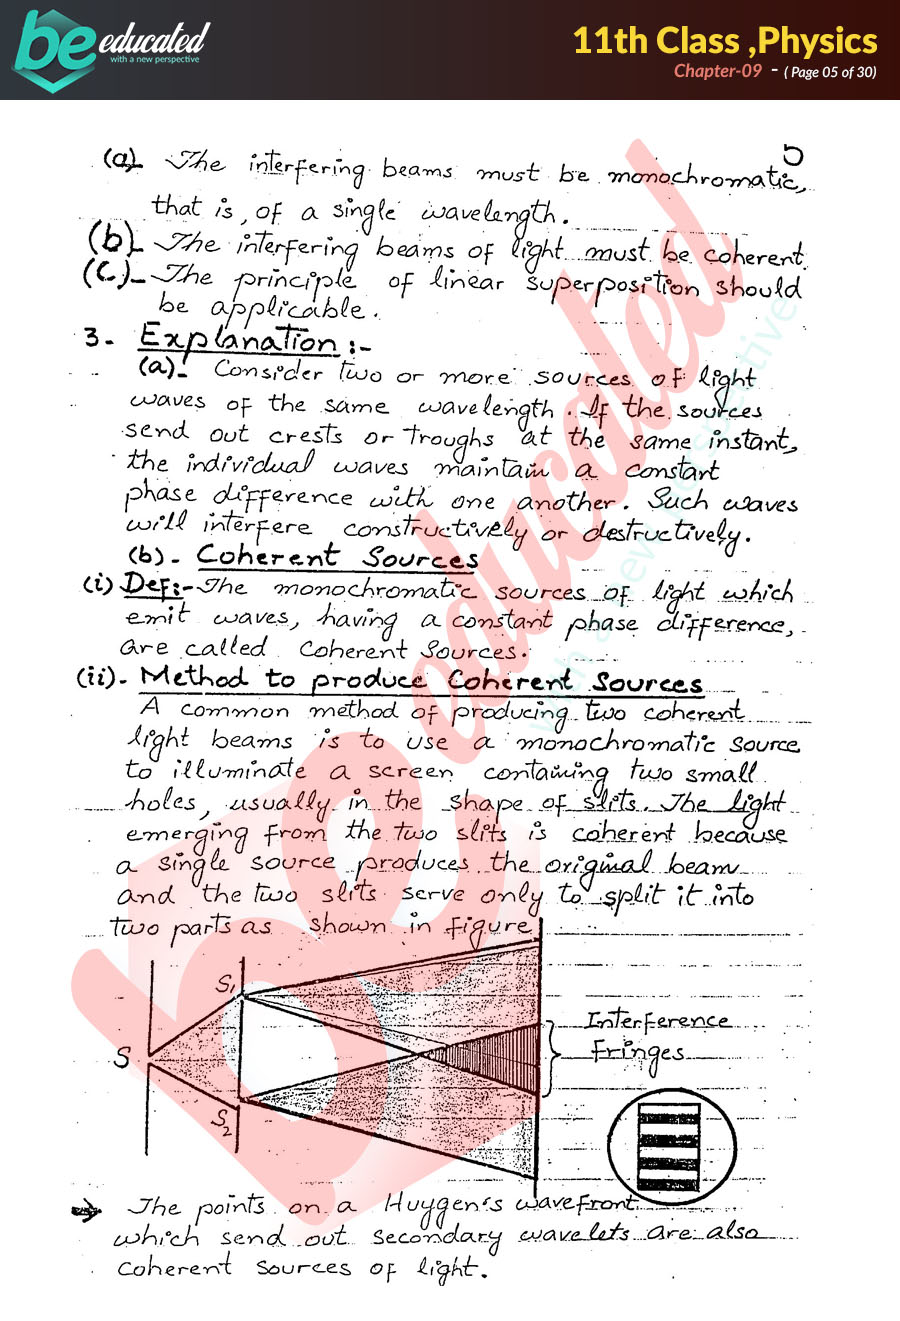 be educated
with a new perspective
11th Class ,Physics
Chapter-09 - ( Page 05 of 30)
5
(a)_ The interfering beams must be monochromatic,
that is, of a single wavelength.
(b)_ The interfering beams of light must be coherent.
(C)_ The principle of linear superposition should
be applicable.
3- Explanation :-
(a)- Consider two or more sources of light
waves of the same wavelength. If the sources
send out crests or troughs at the same instant,
the individual waves maintain a constant
phase difference with one another. Such waves
will interfere constructively or destructively.
(b)- Coherent Sources
(i) Def:- The monochromatic sources of light which
emit waves, having a constant phase difference,
are called Coherent Sources.
(ii)- Method to produce Coherent Sources
A common method of producing two coherent
light beams is to use a monochromatic source
to illuminate a screen containing two small
holes, usually in the shape of slits. The light
emerging from the two slits is coherent because
a single source produces the original beam
and the two slits serve only to split it into
two parts as shown in figure
S1
S
S2
Interference
Fringes
→ The points on a Huygen's wavefront
which send out secondary wavelets are also
coherent sources of light.
be educated
with a new perspective